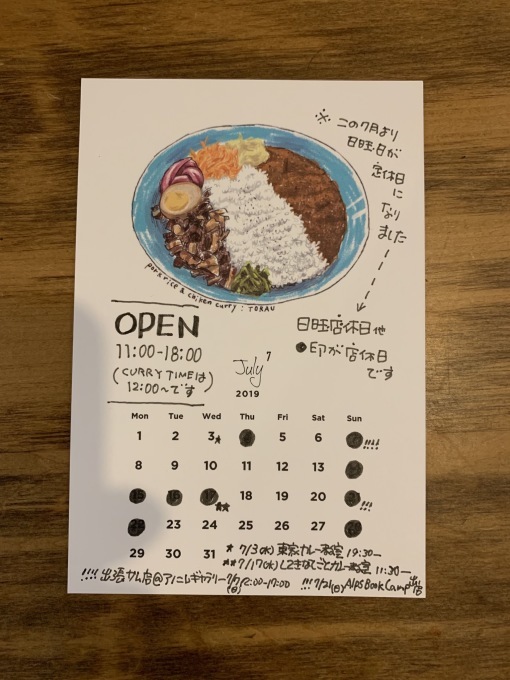 ※ この7月より
日曜日が
定休日
に
なり
ました
pork rice & chiken curry : TORAU
OPEN
11:00-18:00
(CURRY TIMEは
12:00〜です)
日曜店休日他
●印が店休日
です
July 7
2019
Mon Tue Wed Thu Fri Sat Sun
1 2 3* 5 6 !!!!
8 9 10 11 12 13
15 16 17** 18 19 20 21 !!!
23 24 25 26 27
29 30 31
* 7/3(水) 東京カレー教室 19:30—
** 7/17(水) しごとカレー教室 11:30—
!!!! 出張サム店@アノニムギャラリー 7/7(日) 12:00-17:00
!!! 7/21(日) Alps Book Camp 出店